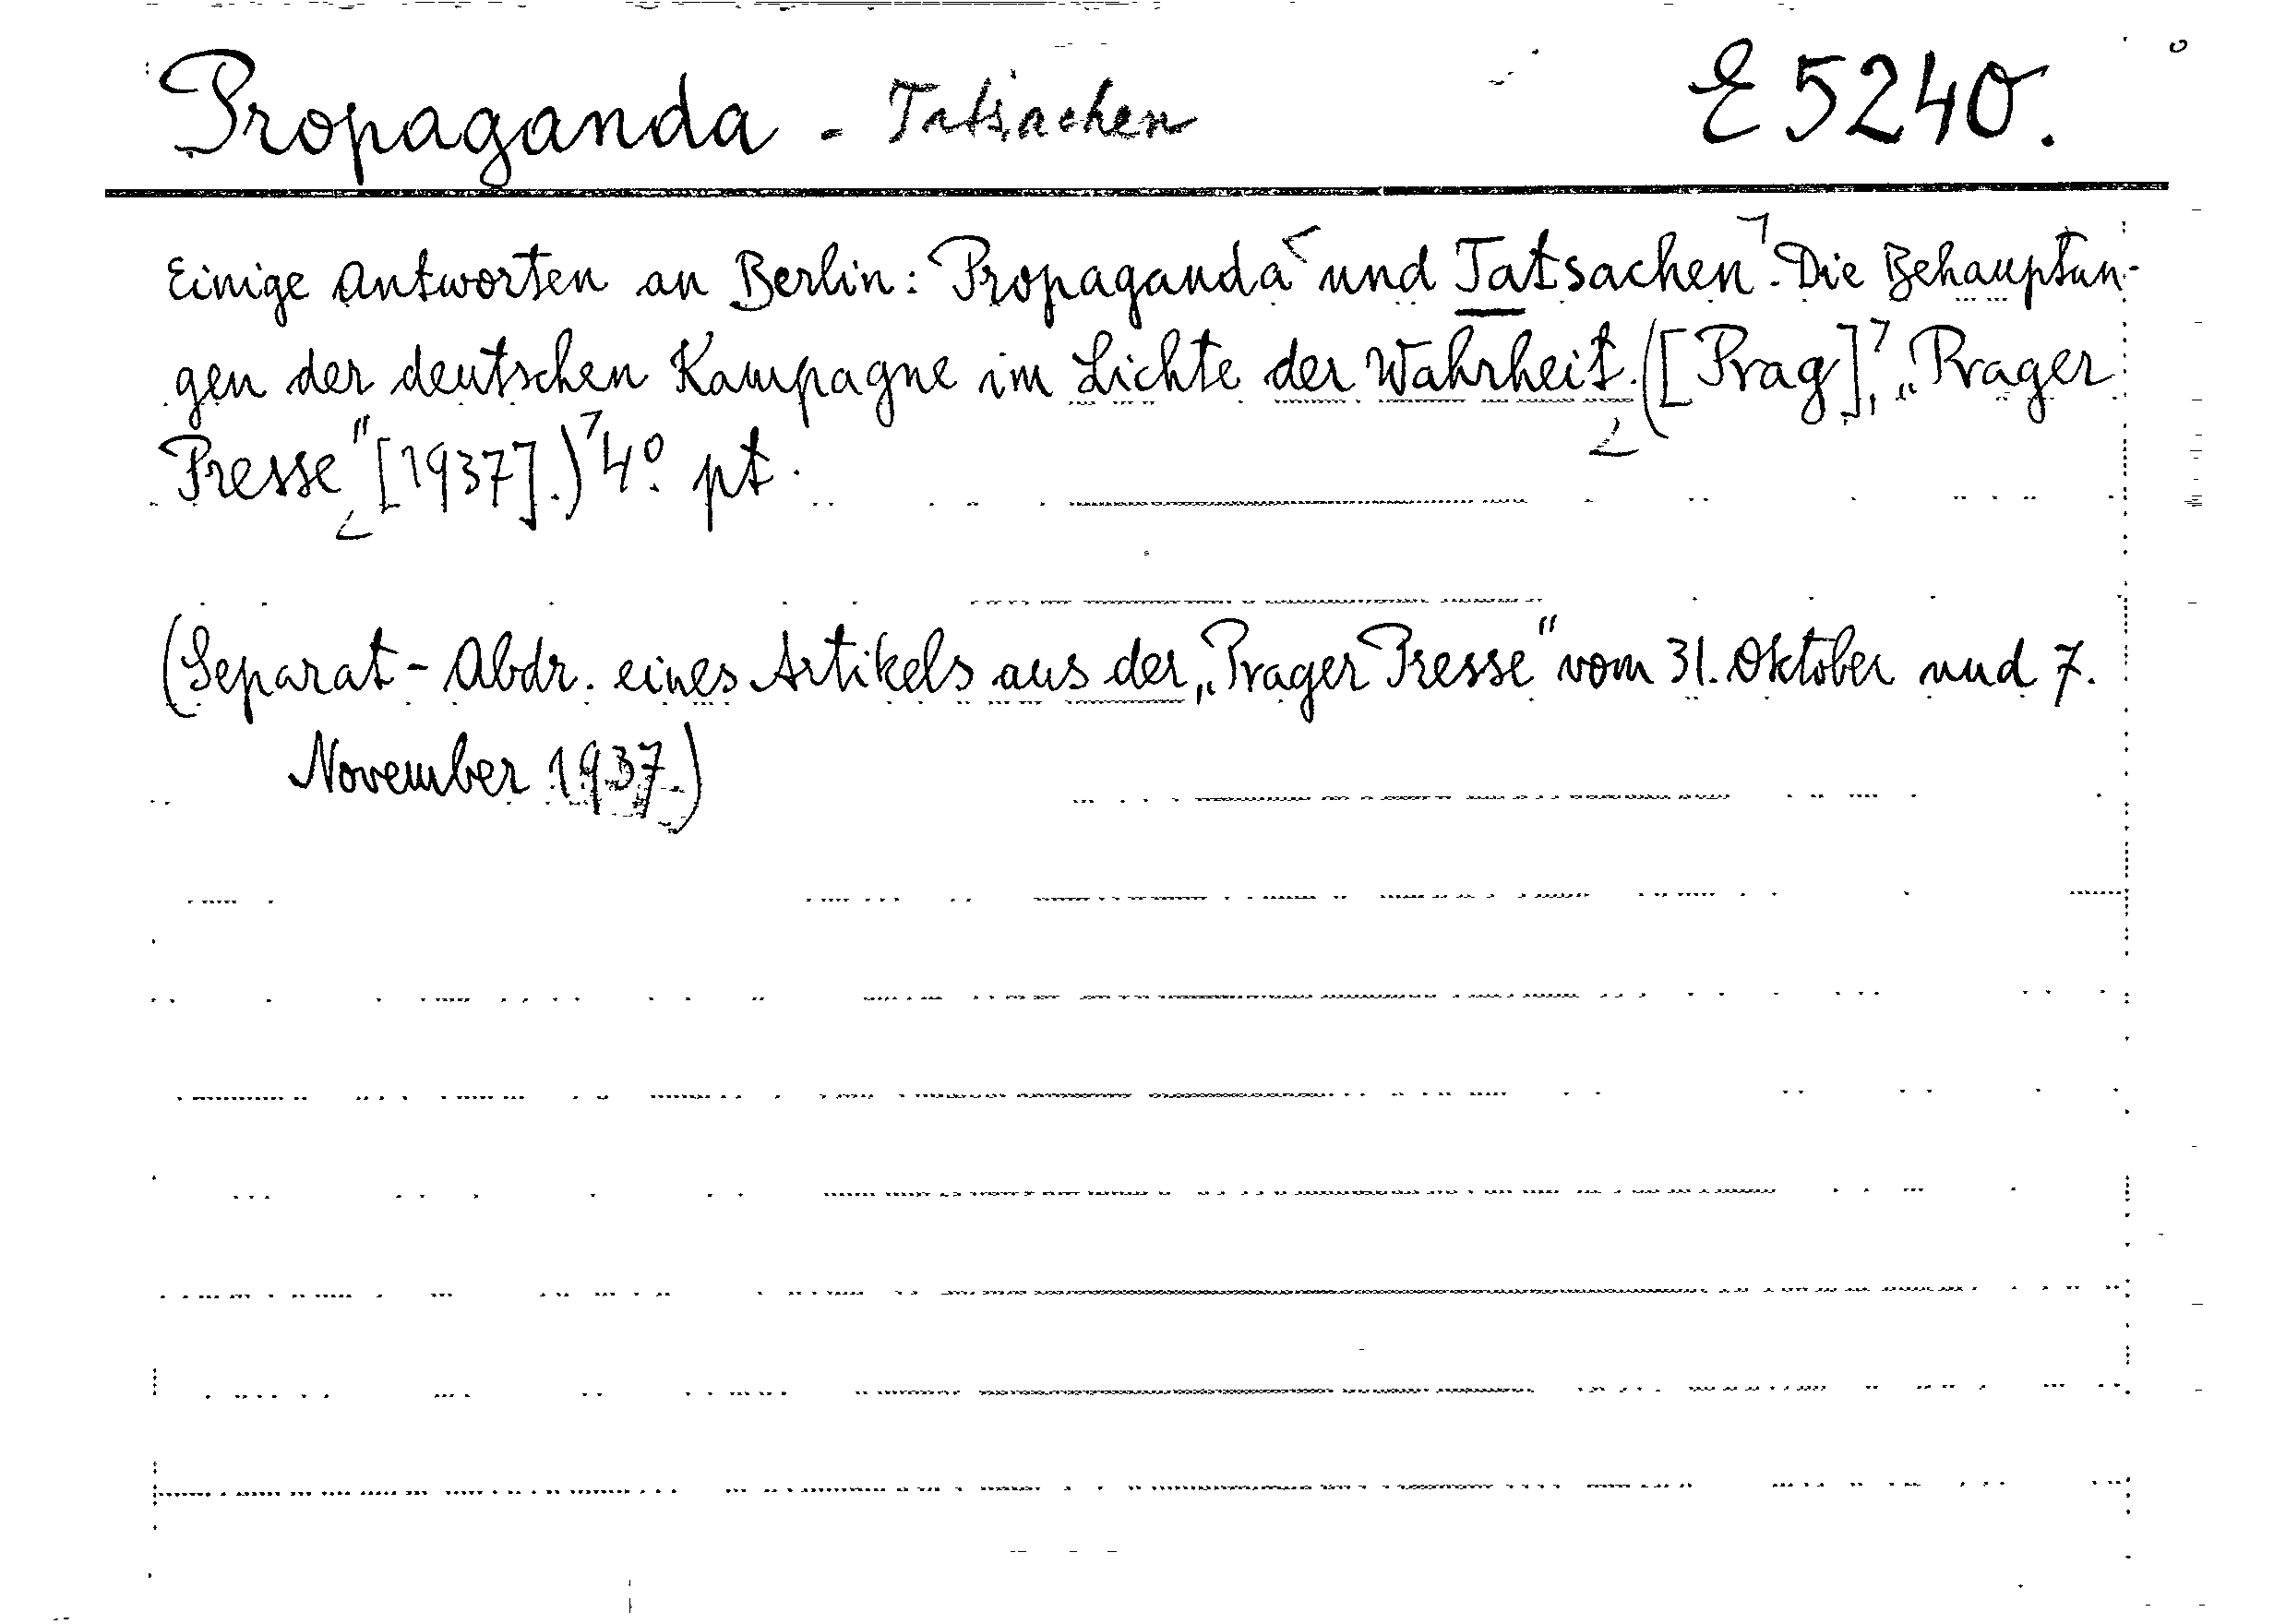 Propaganda - Tatsachen E 5240.
Einige Antworten an Berlin: Propaganda und Tatsachen. Die Behauptun-
gen der deutschen Kampagne im Lichte der Wahrheit. ([Prag], „Prager
Presse" [1937].) 4° pt.
(Separat-Abdr. eines Artikels aus der „Prager Presse" vom 31. Oktober und 7.
November 1937.)